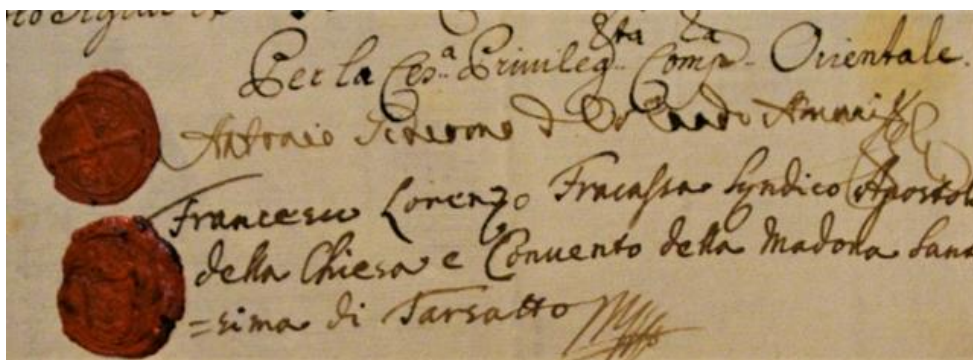 Per la Ces.a Privileg.ta Comp.a Orientale.
Antonio d'Orlando
Francesco Lorenzo Fracassa Syndico Apostol
della Chiesa e Convento della Madona Sant
=sima di Tarsatto